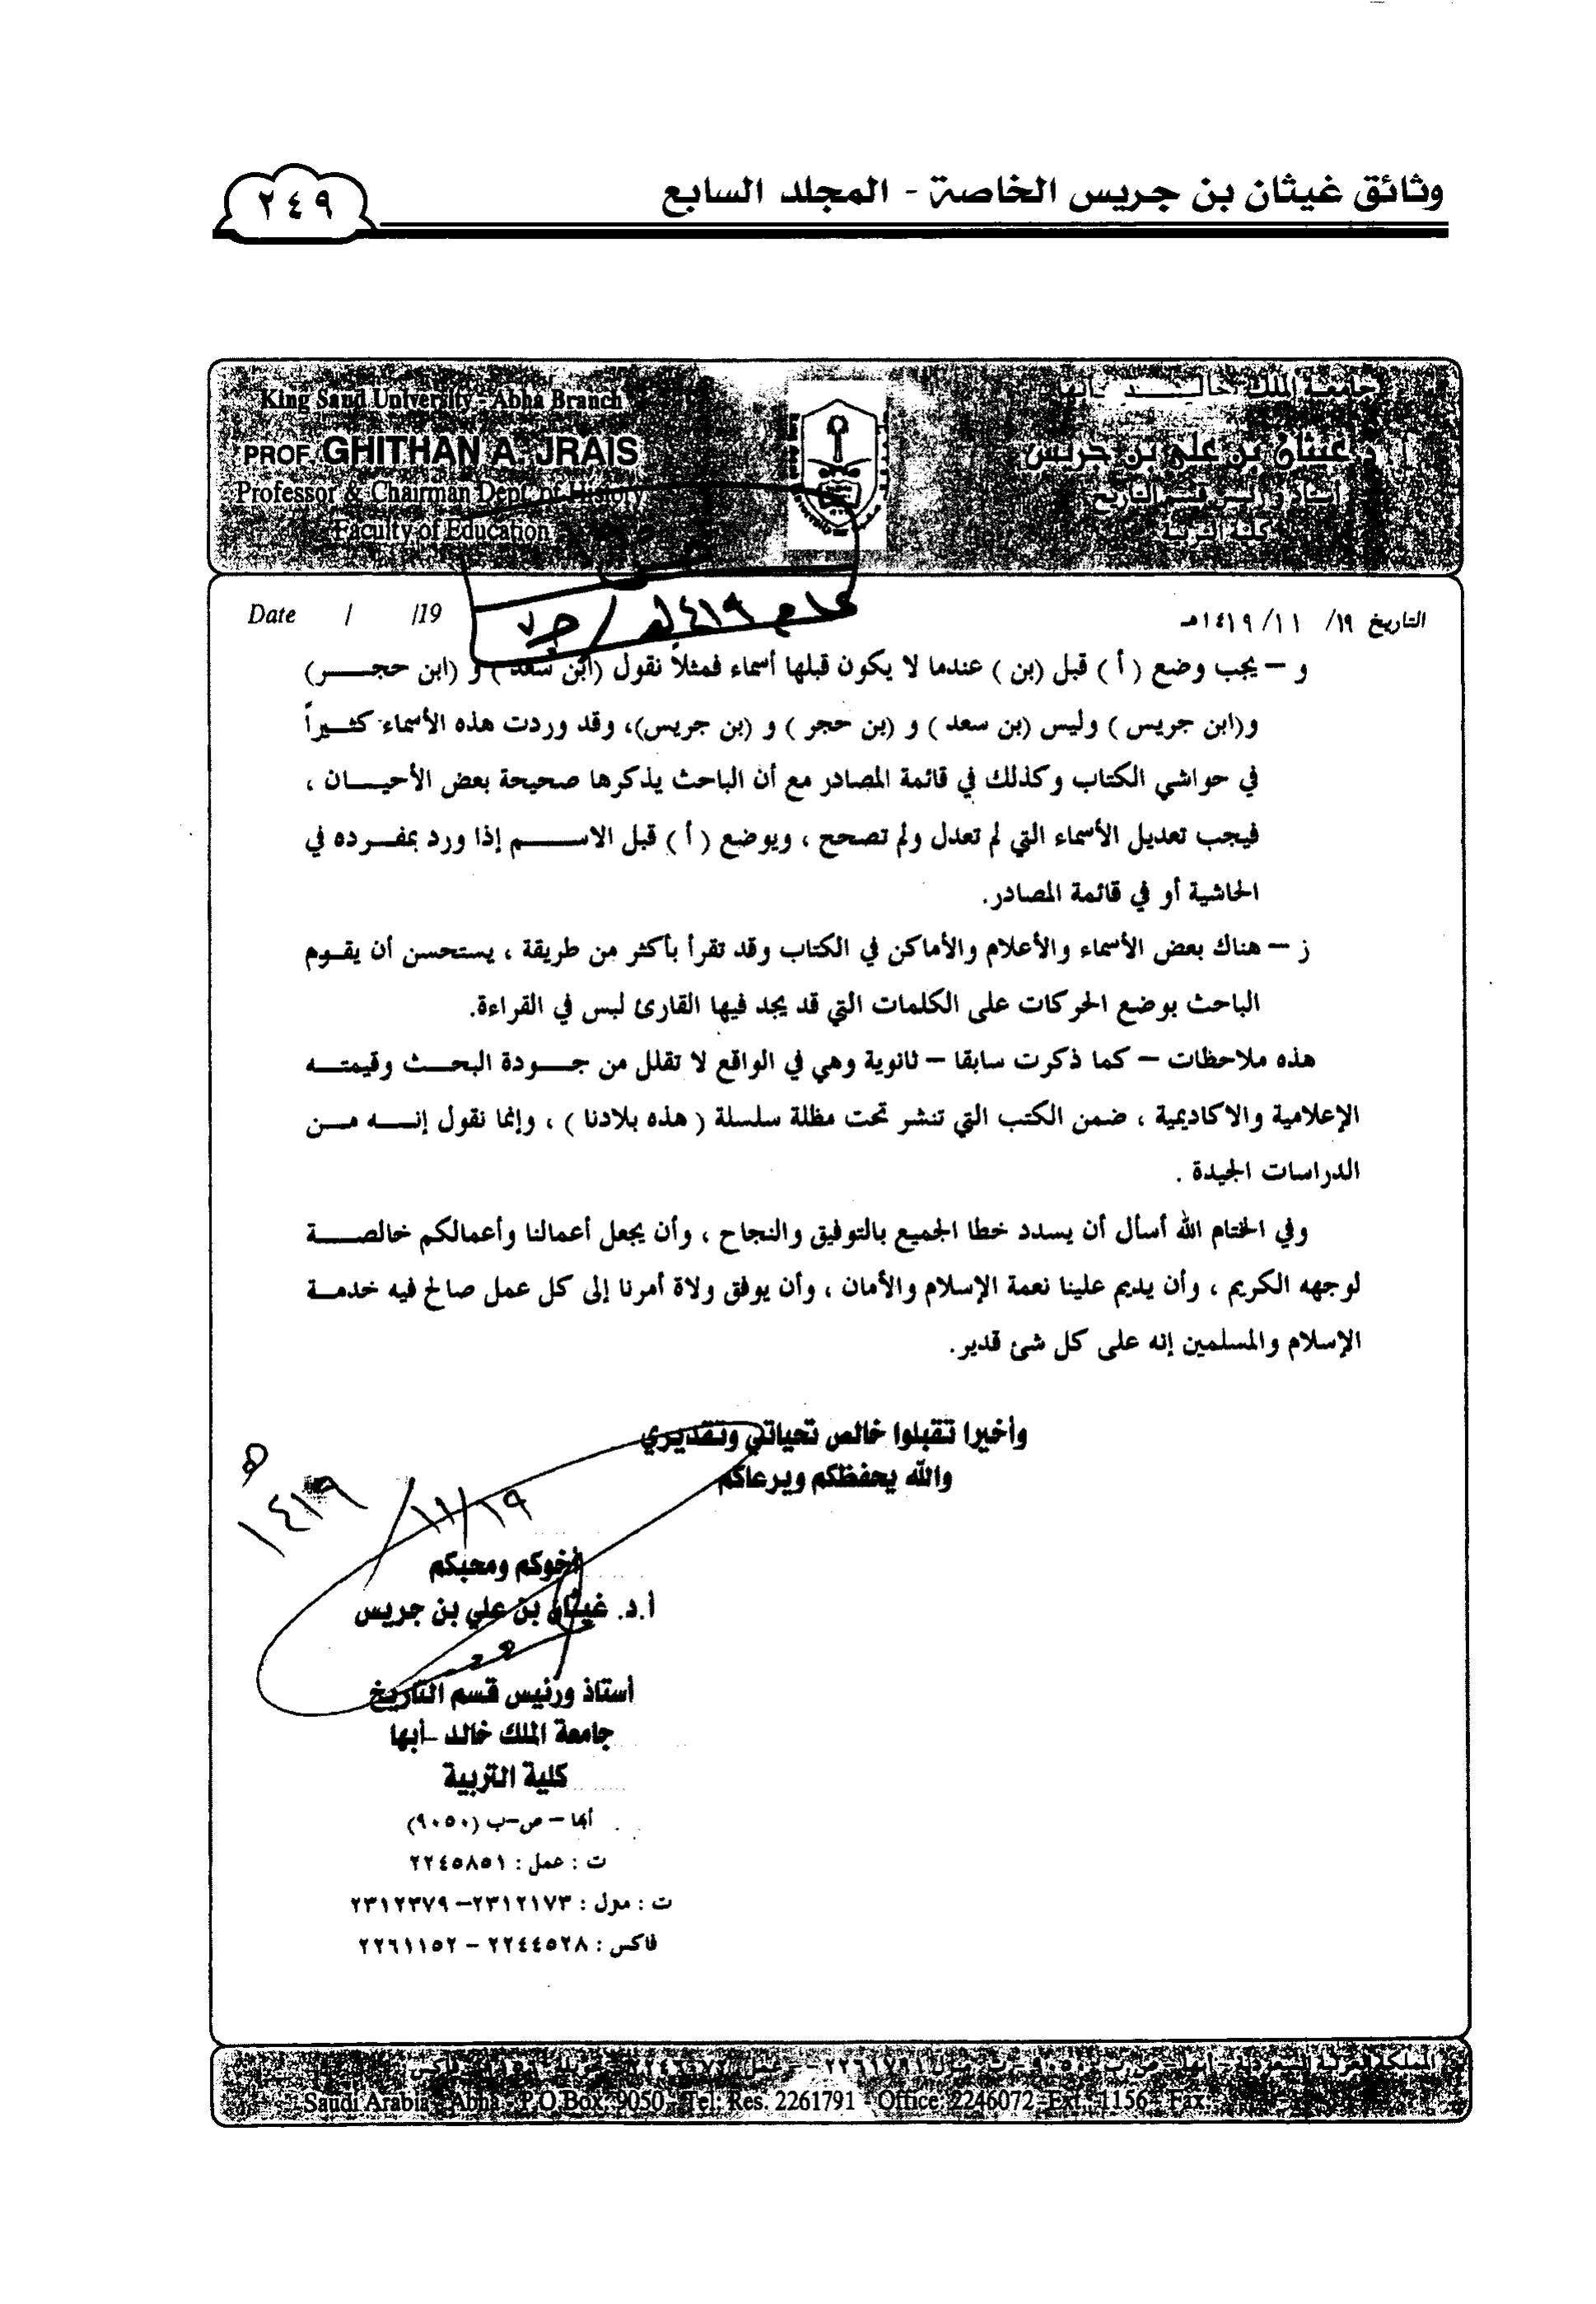 وثائق غيثان بن جريس الخاصة - المجلد السابع
٢٤٩
King Saud University - Abha Branch
PROF. GHITHAN A. JRAIS
Professor & Chairman Dept. of History
Faculty of Education
جامعة الملك خالـــد بأبها
أ.د. غيثان بن علي بن جريس
أستاذ ورئيس قسم التاريخ
كلية التربية
التاريخ ١٩/ ١٤١٩/١١هـ
Date / /19
و – يجب وضع ( أ ) قبل (بن ) عندما لا يكون قبلها أسماء فمثلاً نقول (ابن سعد ) و (ابن حجـــر)
و(ابن جريس ) وليس (بن سعد ) و (بن حجر ) و (بن جريس)، وقد وردت هذه الأسماء كثـيراً
في حواشي الكتاب وكذلك في قائمة المصادر مع أن الباحث يذكرها صحيحة بعض الأحيـــان ،
فيجب تعديل الأسماء التي لم تعدل ولم تصحح ، ويوضع ( أ ) قبل الاســـم إذا ورد بمفـرده في
الحاشية أو في قائمة المصادر.
ز – هناك بعض الأسماء والأعلام والأماكن في الكتاب وقد تقرأ بأكثر من طريقة ، يستحسن أن يقـوم
الباحث بوضع الحركات على الكلمات التي قد يجد فيها القارئ لبس في القراءة.
هذه ملاحظات – كما ذكرت سابقا – ثانوية وهي في الواقع لا تقلل من جـــودة البحـث وقيمتـه
الإعلامية والاكاديمية ، ضمن الكتب التي تنشر تحت مظلة سلسلة ( هذه بلادنا ) ، وإنما نقول إنـــه مـن
الدراسات الجيدة .
وفي الختام الله أسأل أن يسدد خطا الجميع بالتوفيق والنجاح ، وأن يجعل أعمالنا وأعمالكم خالصـــة
لوجهه الكريم ، وأن يديم علينا نعمة الإسلام والأمان ، وأن يوفق ولاة أمرنا إلى كل عمل صالح فيه خدمـة
الإسلام والمسلمين إنه على كل شئ قدير.
وأخيرا تقبلوا خالص تحياتي وتقديري
والله يحفظكم ويرعاكم
١٩/١١/ ١٤١٩ه
أخوكم ومحبكم
أ.د. غيثان بن علي بن جريس
أستاذ ورئيس قسم التاريخ
جامعة الملك خالد –أبها
كلية التربية
أبها – ص-ب (٩٠٥٠)
ت : عمل : ٢٢٤٥٨٥١
ت : منزل : ٢٣١٢١٧٣– ٢٣١٢٣٧٩
فاكس : ٢٢٤٤٥٢٨ – ٢٢٦١١٥٢
Saudi Arabia - Abha - P.O.Box. 9050 - Tel: Res. 2261791 - Office: 2246072 - Ext. 1156 - Fax: